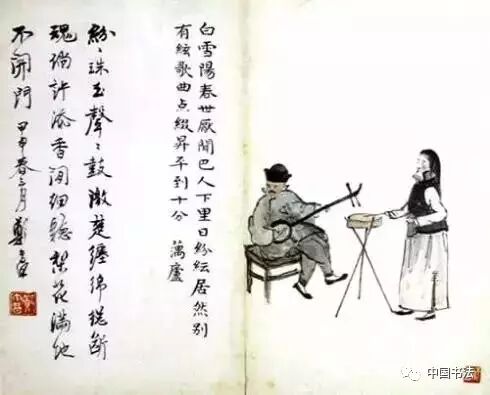 白雪陽春世厭聞巴人下里日紛紜居然別
有絃歌曲点綴昇平到十分 萬廬
紛〻珠玉聲〻鼓激楚纏綿摠斷
魂 許添香閒細聽梨花滿地
不開門 甲申春三月
中国书法